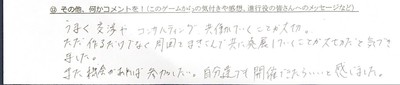 ⑫ その他、何かコメントを!(このゲームからの気付きや感想、進行役の皆さんへのメッセージなど)
うまく交渉や コンサルティング 共働かしていくことが大切。
ただ作るだけでなく周囲をまきこんで共に発展していくことが大切だと気づき
ました。
また機会があれば参加したい。自分達でも開催できたら・・・と感じました。